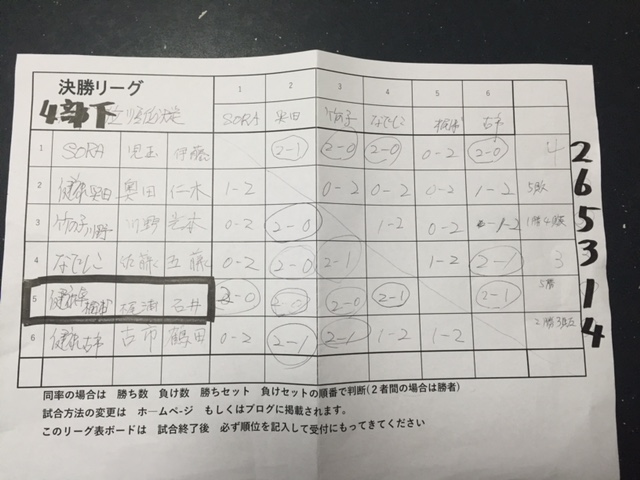 決勝リーグ 1 2 3 4 5 6
4部下 SORA 奥田 竹の子 なでしこ 古市
1 SORA 児玉 伊藤 2-1 2-0 2-0 0-2 2-0 4 2
2 健康奥田 奥田 仁木 1-2 0-2 0-2 0-2 1-2 5敗 6
3 竹の子川野 川野 岩本 0-2 2-0 1-2 0-2 1-2 1勝4敗 5
4 なでしこ 佐藤 五藤 0-2 2-0 2-1 1-2 2-1 3 3
5 石井 2-0 2-0 2-0 2-1 2-1 5勝 1
6 健康古市 古市 鶴田 0-2 2-1 2-1 1-2 1-2 4
同率の場合は 勝ち数 負け数 勝ちセット 負けセットの順番で判断(2者間の場合は勝者)
試合方法の変更は ホームページ もしくはブログに掲載されます。
このリーグ表ボードは 試合終了後 必ず順位を記入して受付にもってきてください